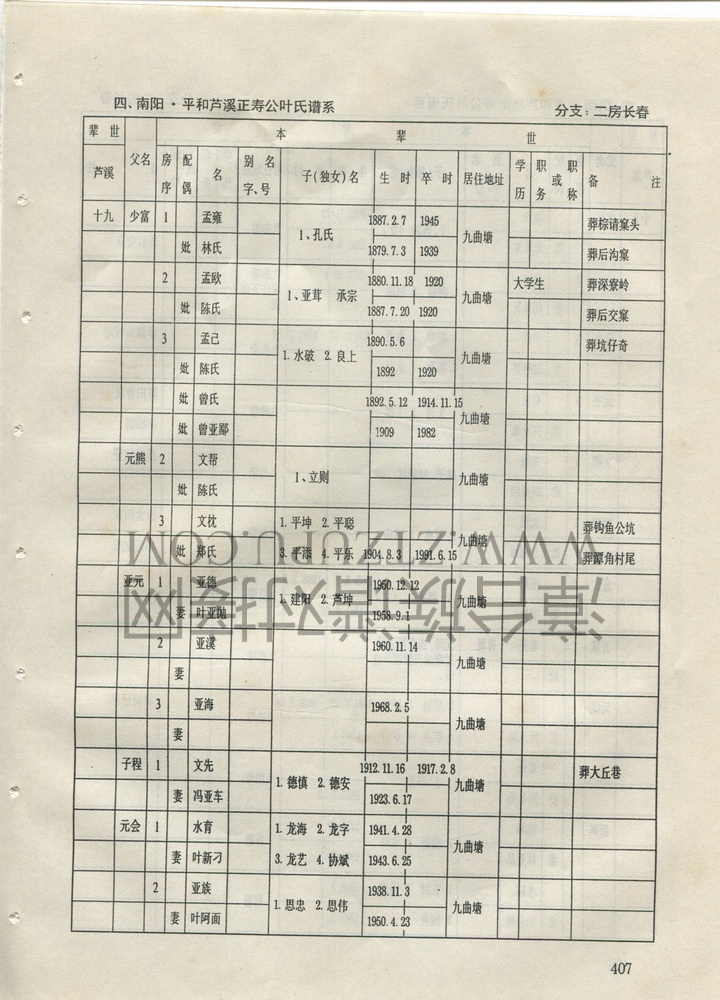 四、南阳·平和芦溪正寿公叶氏谱系 分支：二房长春
辈世 本 辈 世
芦溪 父名 房序 配偶 名 别名字、号 子(独女)名 生时 卒时 居住地址 学历 职务 或 职称 备注
十九 少富 1 孟雍 1、孔氏 1887.2.7 1945 九曲塘 葬棕请窠头
妣 林氏 1879.7.3 1939 葬后沟窠
2 孟欧 1、亚茸 承宗 1880.11.18 1920 九曲塘 大学生 葬深寮岭
妣 陈氏 1887.7.20 1920 葬后交窠
3 孟己 1.水破 2.良上 1890.5.6 九曲塘 葬坑仔奇
妣 陈氏 1892 1920
妣 曾氏 1892.5.12 1914.11.15 九曲塘
妣 曾亚鄙 1909 1982
元熊 2 文帮 1、立则 九曲塘
妣 陈氏
3 文枕 1.平坤 2.平聪 九曲塘 葬钩鱼公坑
妣 郑氏 3.平添 4.平乐 1904.8.3 1991.6.15 葬潭角村尾
亚元 1 亚德 1.建阳 2.芦坤 1950.12.12 九曲塘
妻 叶亚抛 1958.9.1
2 亚溪 1960.11.14 九曲塘
妻
3 亚海 1968.2.5 九曲塘
妻
子程 1 文先 1.德慎 2.德安 1912.11.16 1917.2.8 九曲塘 葬大丘巷
妻 冯亚车 1923.6.17
元会 1 水育 1.龙海 2.龙字 1941.4.28 九曲塘
妻 叶新刁 3.龙艺 4.协斌 1943.6.25
2 亚族 1.思忠 2.思伟 1938.11.3 九曲塘
妻 叶阿面 1950.4.23
407
WWW.ZTZUPU.COM
漳台族谱对接网